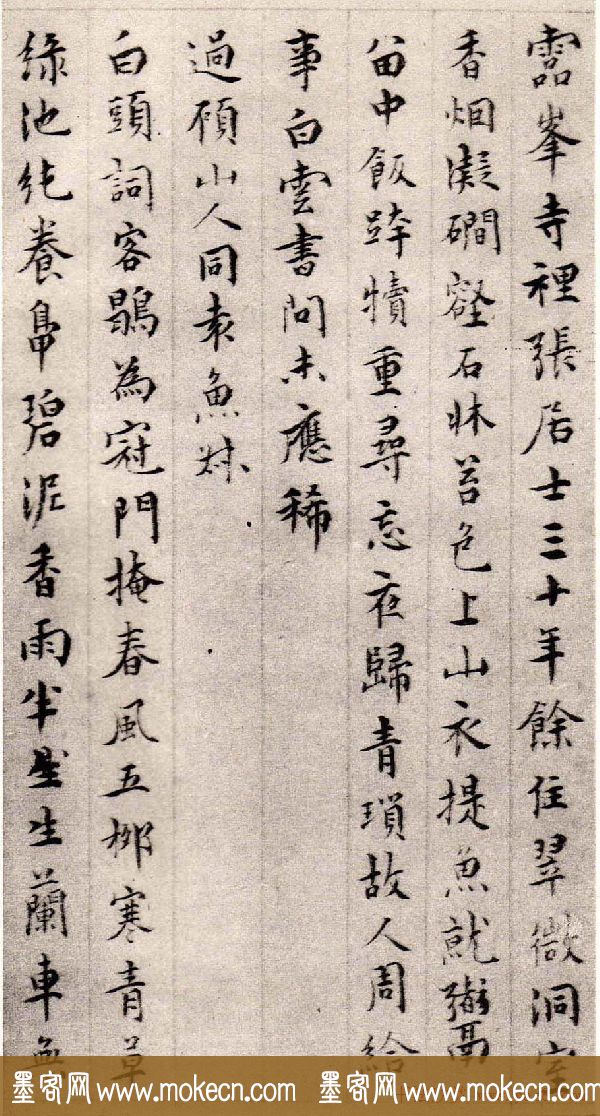 靈峯寺裡張居士三十年餘住翠微洞室
香烟凝磵壑石牀苔色上山衣提魚就鬻
畄中飯跨犢重尋忘夜歸青瑣故人周給
事白雲書問未應稀
過頋山人同袁魚
白頭詞客鶡為冠門掩春風五柳寒青草
綠池純養碧泥香雨半生蘭車無
墨客网 www.mokecn.com 墨客网 www.mokecn.com